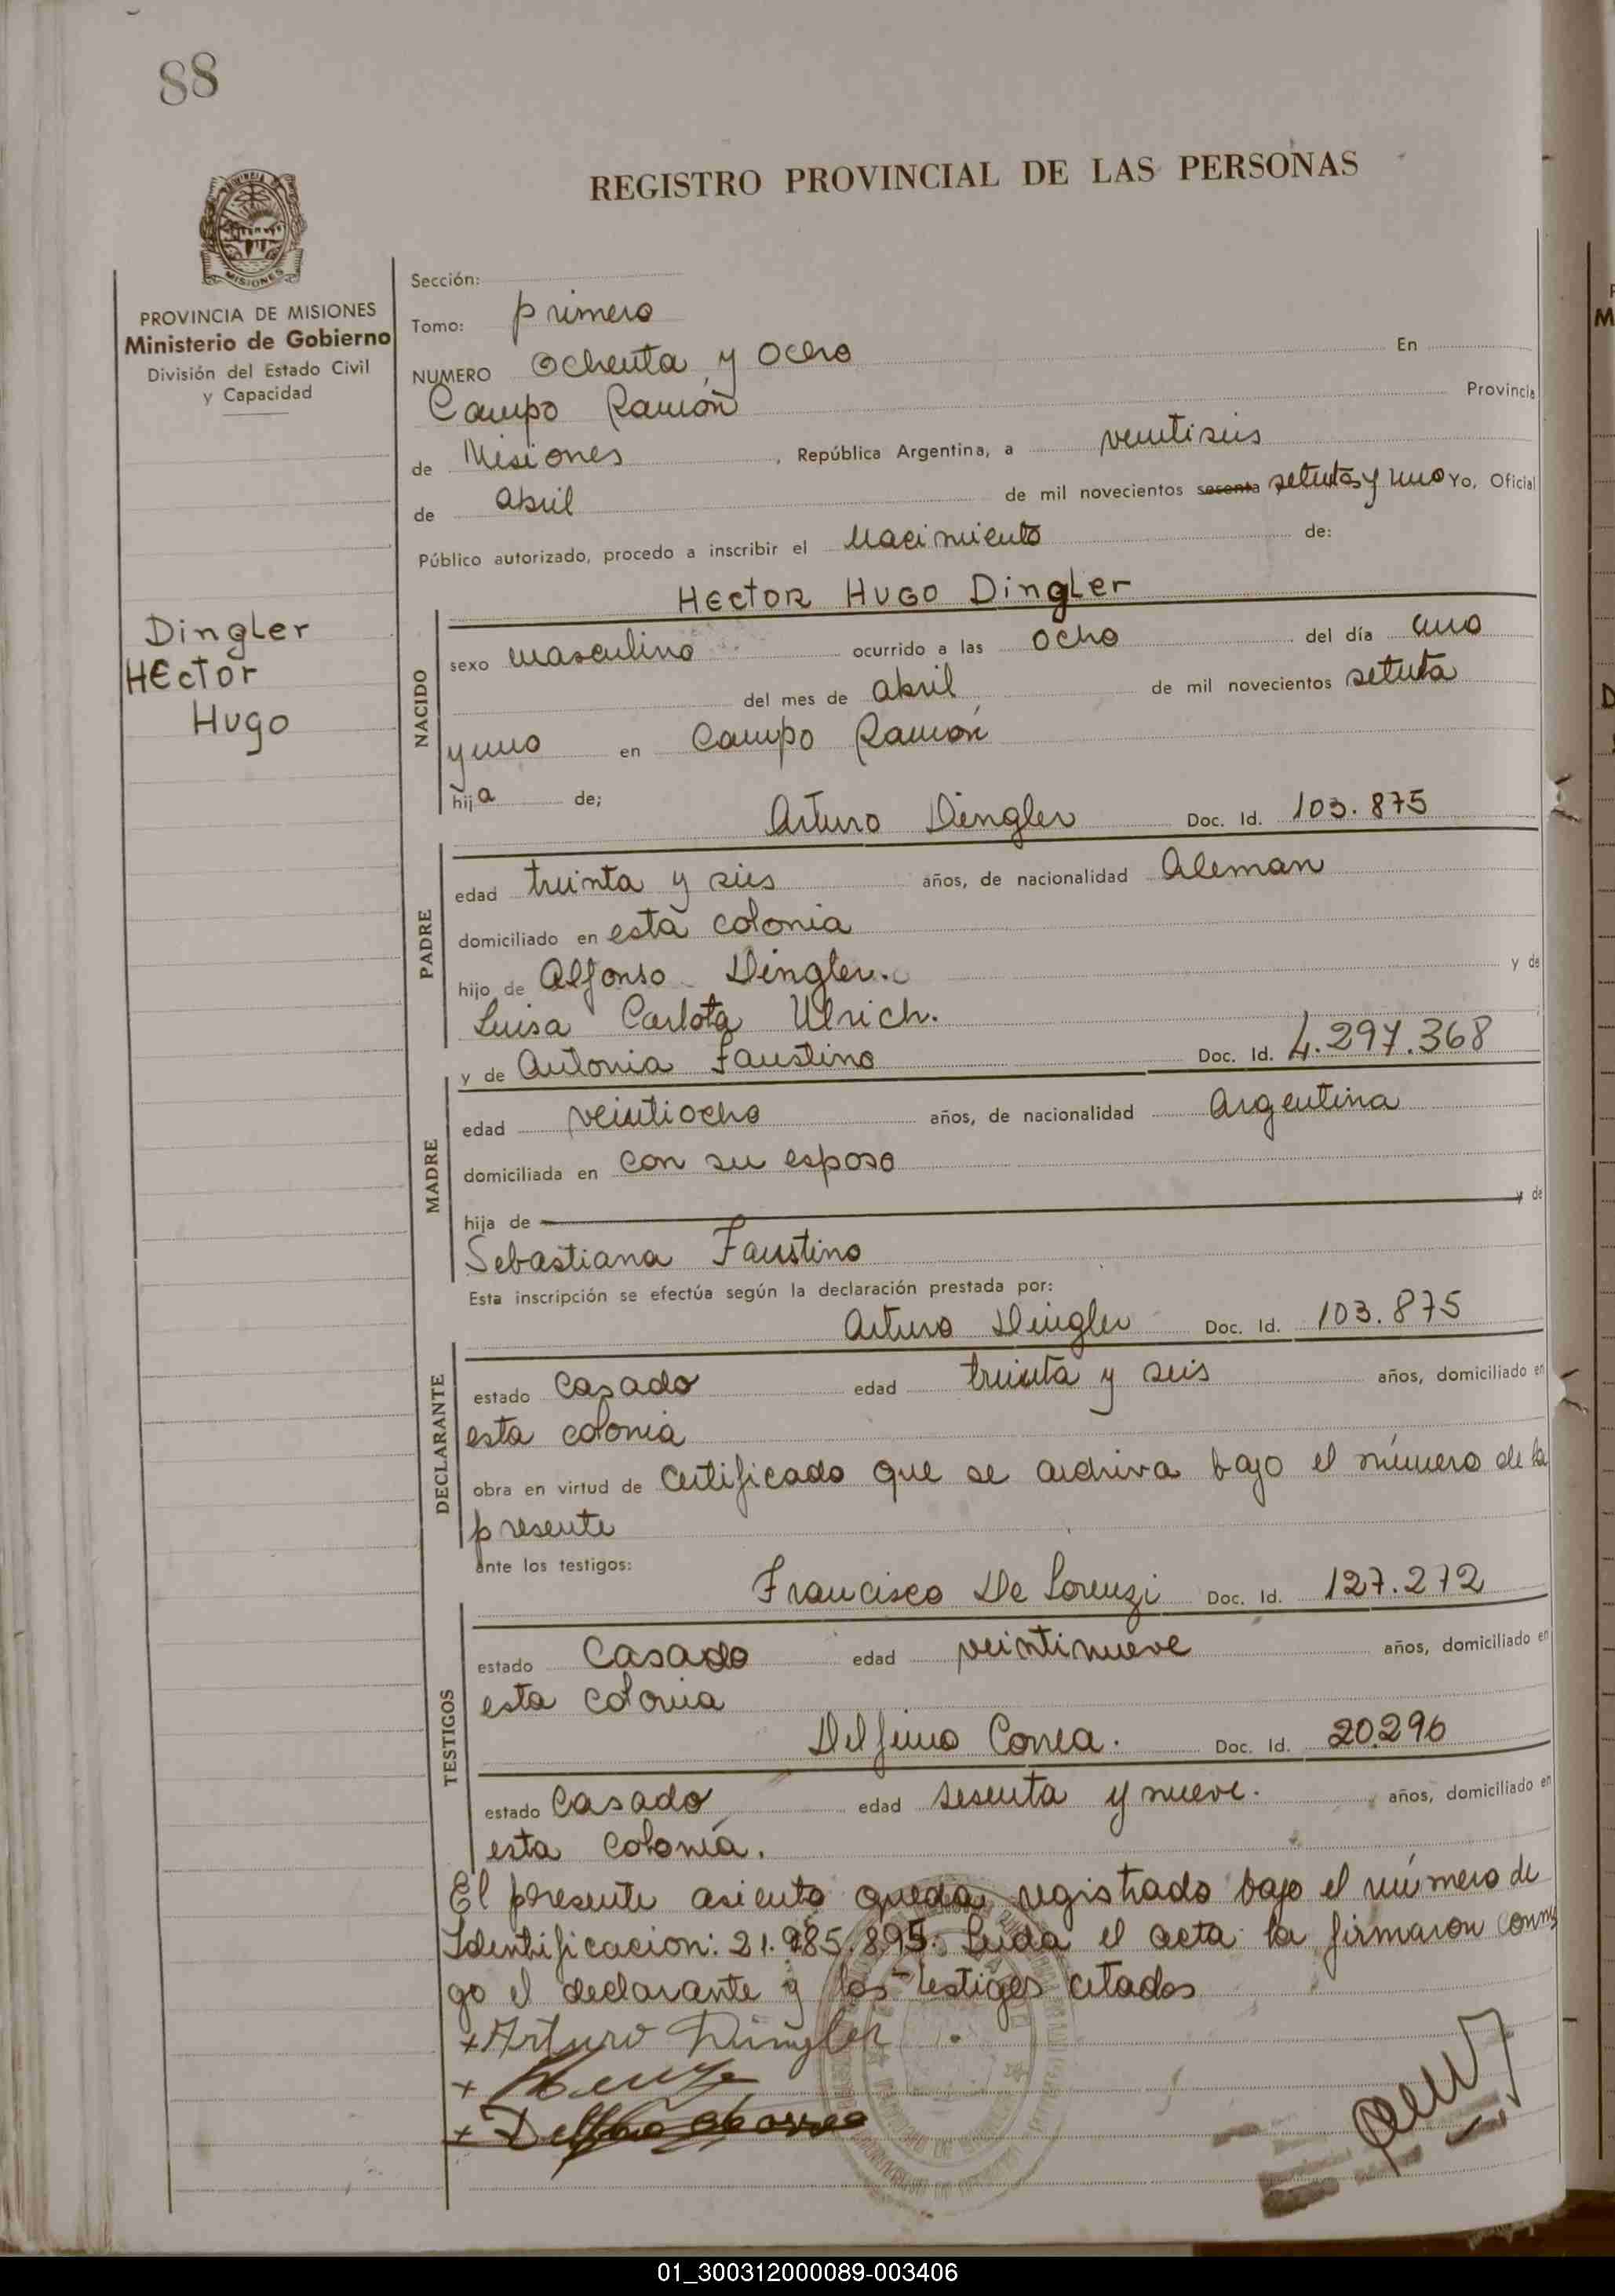 88
REGISTRO PROVINCIAL DE LAS PERSONAS
MISIONES
PROVINCIA DE MISIONES
Ministerio de Gobierno
División del Estado Civil
y Capacidad
Sección:
Tomo: primero
NUMERO Ochenta y Ocho En
Campo Ramón Provincia
de Misiones, República Argentina, a veintiseis
de abril de mil novecientos sesenta setenta y uno Yo, Oficial
Público autorizado, procedo a inscribir el Nacimiento de:
Hector Hugo Dingler
Dingler
Hector
Hugo
NACIDO
sexo masculino ocurrido a las ocho del día uno
del mes de abril de mil novecientos setenta
y uno en Campo Ramón
hija de;
Arturo Dingler Doc. Id. 103.875
PADRE
edad treinta y seis años, de nacionalidad Aleman
domiciliado en esta colonia
hijo de Alfonso Dingler. y de
Luisa Carlota Ulrich.
y de Antonia Faustino Doc. Id. 4.297.368
MADRE
edad veintiocho años, de nacionalidad Argentina
domiciliada en con su esposo
hija de y de
Sebastiana Faustino
Esta inscripción se efectúa según la declaración prestada por:
Arturo Dingler Doc. Id. 103.875
DECLARANTE
estado Casado edad treinta y seis años, domiciliado en
esta colonia
obra en virtud de Certificado que se archiva bajo el número de la
presente
ante los testigos:
Francisco De Lorenzi Doc. Id. 127.272
TESTIGOS
estado Casado edad veintinueve años, domiciliado en
esta colonia
Delfino Correa. Doc. Id. 20.296
estado Casado edad sesenta y nueve. años, domiciliado en
esta colonia.
El presente asiento queda registrado bajo el número de
Identificacion: 21.985.895. Leida el acta la firmaron conmi
go el declarante y los testigos citados
+ Arturo Dingler
+
+ Delfino Correa
01_300312000089-003406